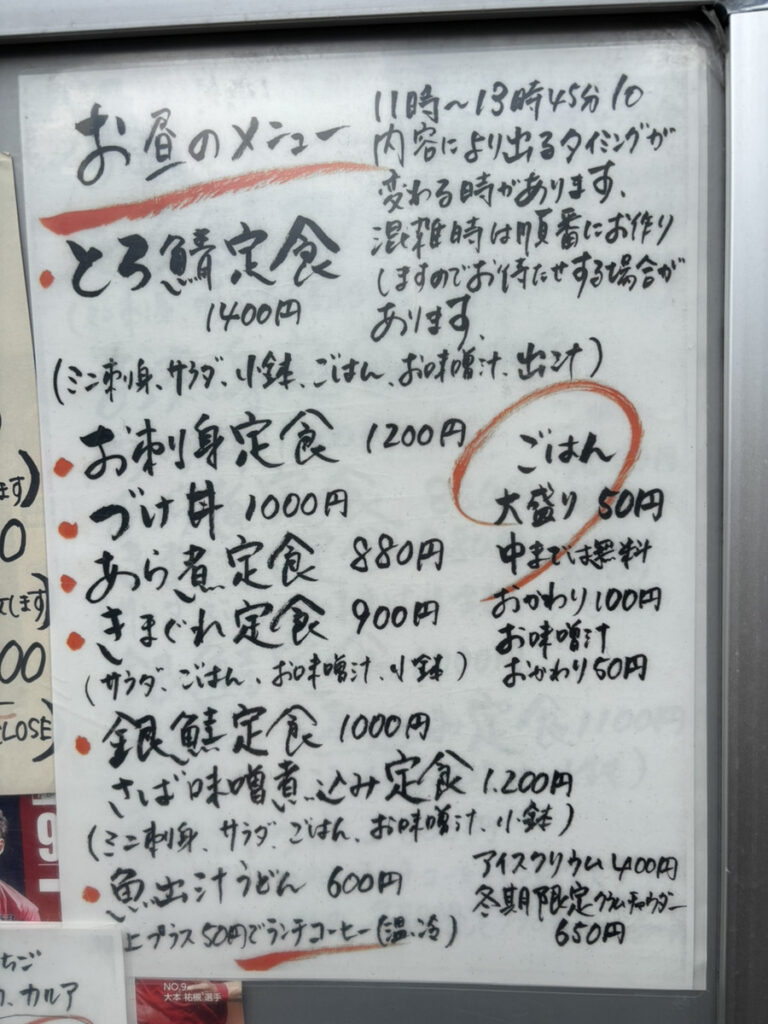 お昼のメニュー
11時～13時45分 LO
内容により出るタイミングが
変わる時があります、
混雑時は順番にお作り
しますのでお待たせする場合が
あります、
・とろ鯖定食
1400円
(ミニ刺身、サラダ、小鉢、ごはん、お味噌汁、出汁)
・お刺身定食 1200円
・づけ丼 1000円
・あら煮定食 880円
・きまぐれ定食 900円
(サラダ、ごはん、お味噌汁、小鉢)
ごはん
大盛り 50円
中までは無料
おかわり100円
お味噌汁
おかわり50円
・銀鮭定食 1000円
さば味噌煮込み定食 1.200円
(ミニ刺身、サラダ、ごはん、お味噌汁、小鉢)
・魚出汁うどん 600円
上プラス50円でランチコーヒー(温、冷)
アイスクリウム 400円
冬期限定クラムチャウダー
650円
ます)
0
します)
00
CLOSE)
9
ちご
カルア
NO.9
大本 祐槻 選手